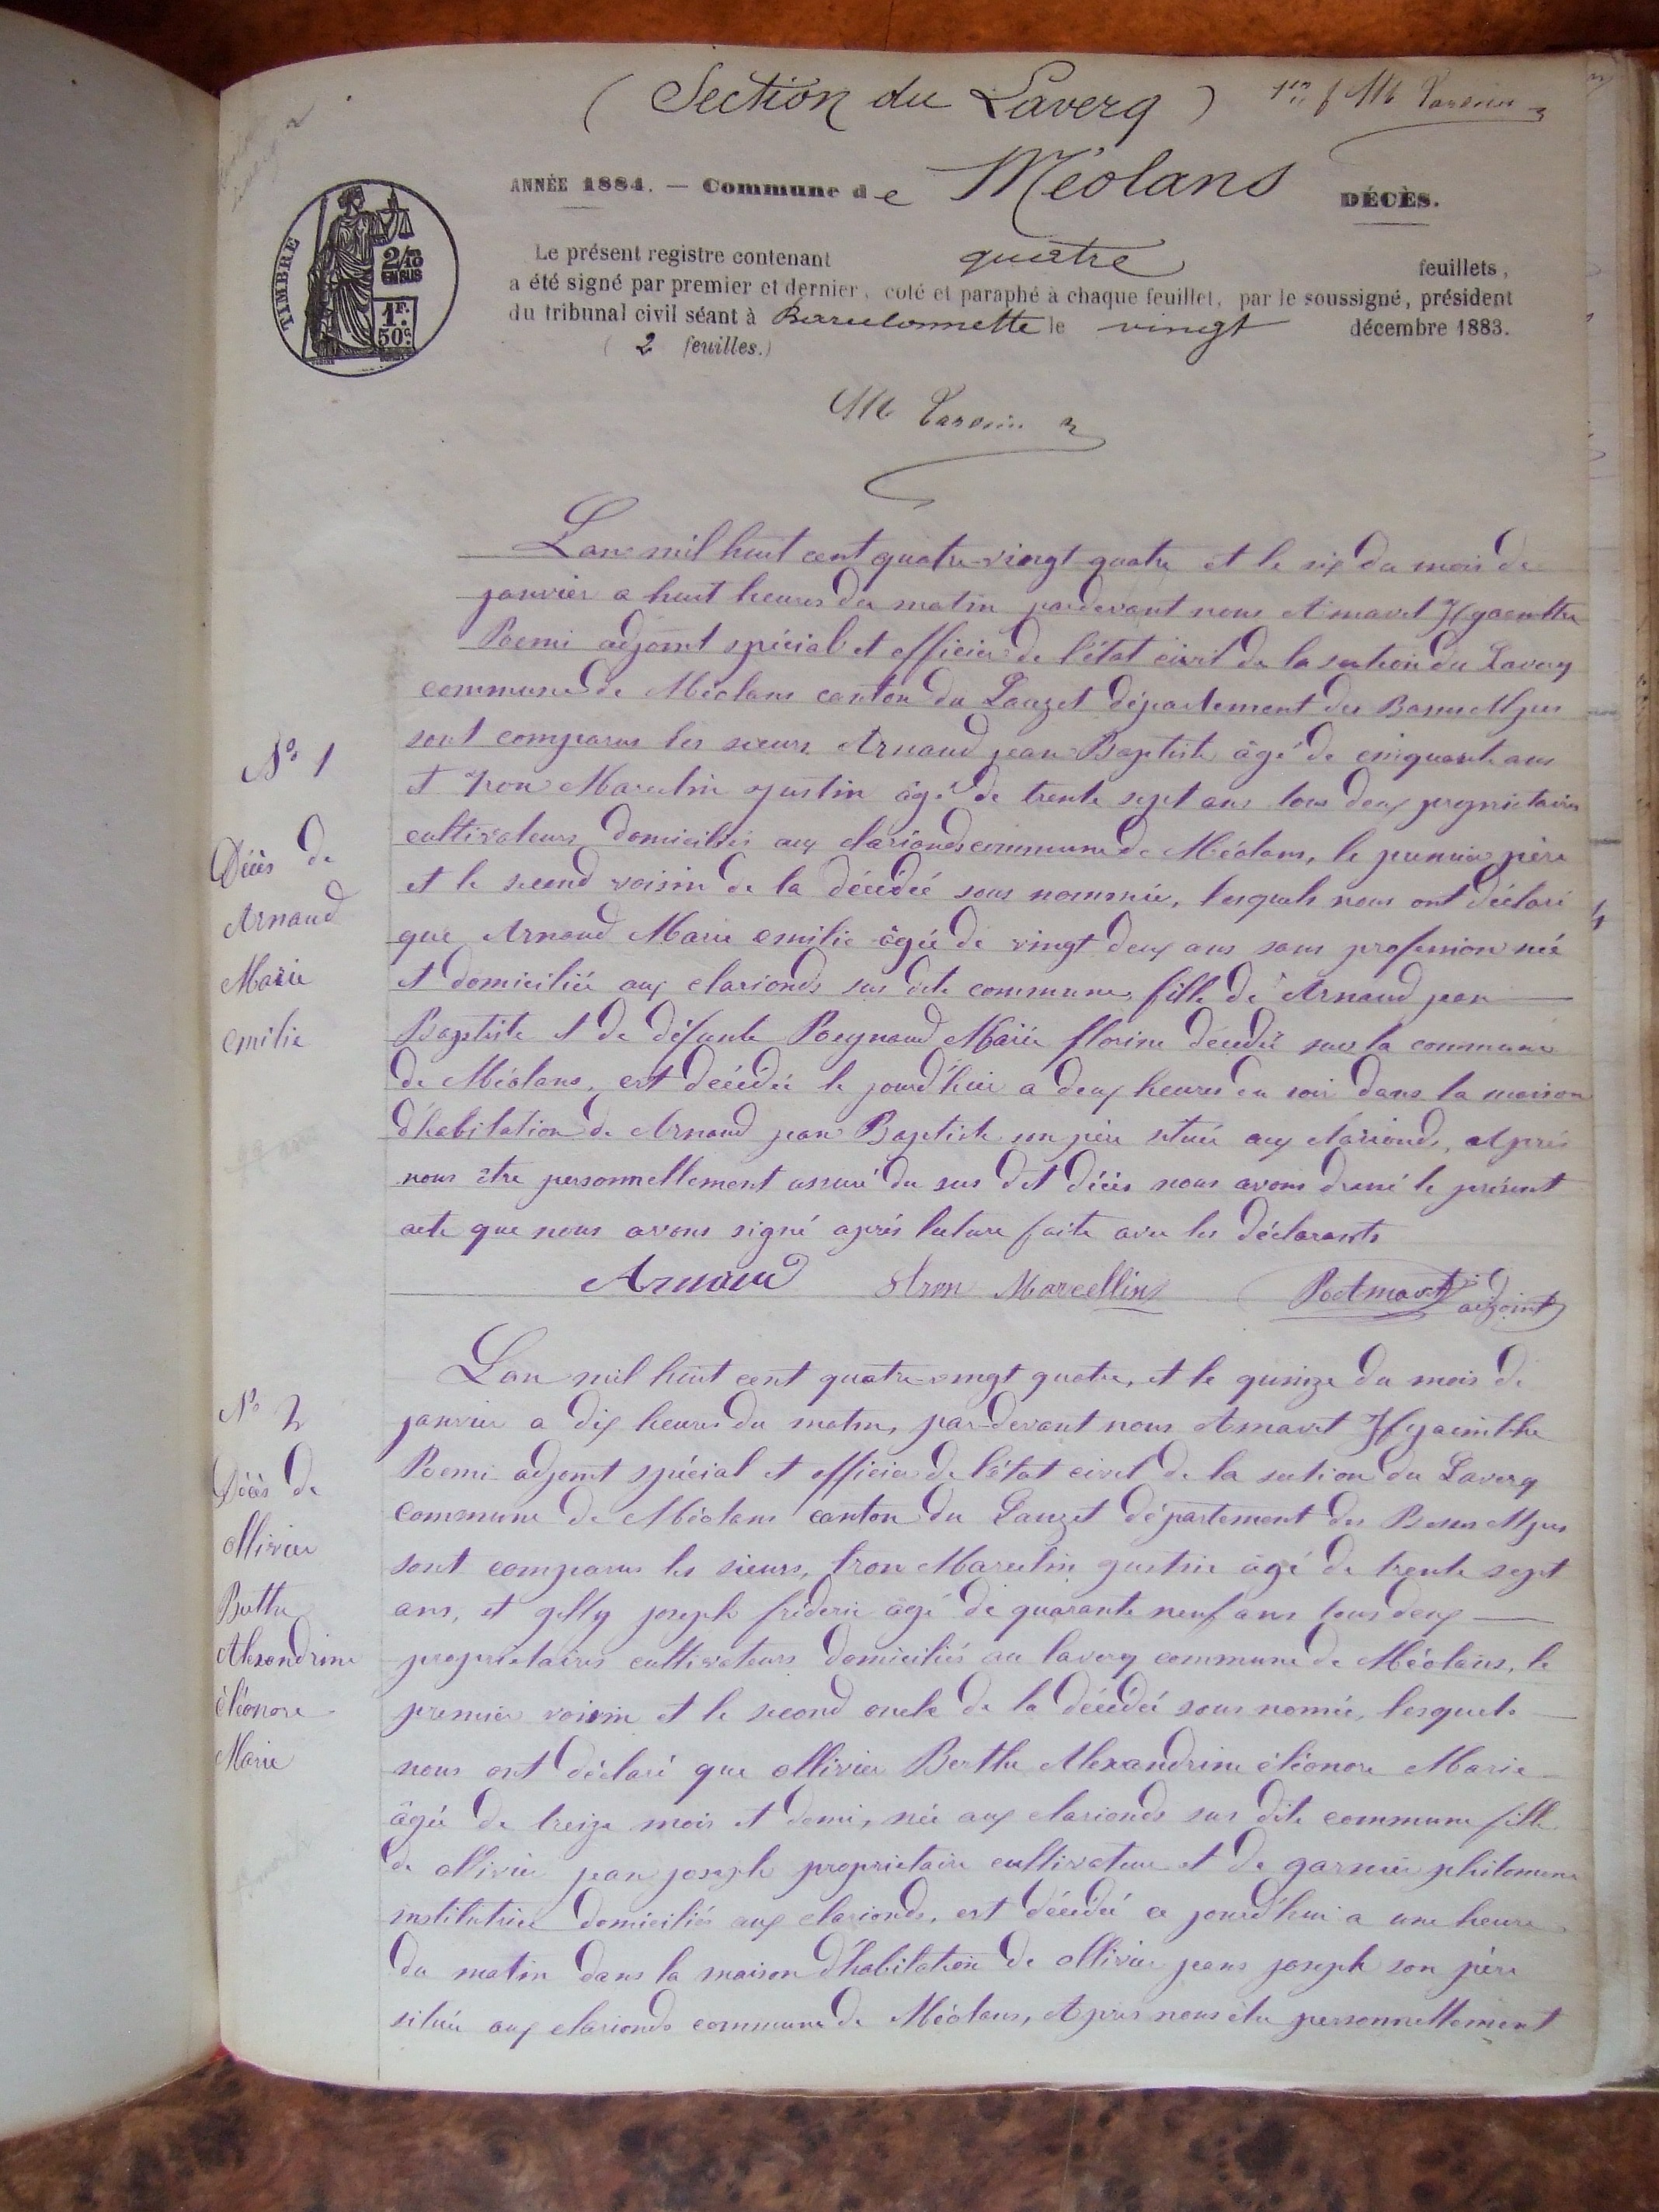 (Section du Laverq)
ANNÉE 1884. — Commune de Méolans DÉCÈS.
TIMBRE
2/10 EN SUS
1F. 50c
Le présent registre contenant quatre feuillets,
a été signé par premier et dernier, coté et paraphé à chaque feuillet, par le soussigné, président
du tribunal civil séant à Barcelonnette le vingt décembre 1883.
(2 feuilles.)
L'an mil huit cent quatre-vingt quatre et le six du mois de
janvier a huit heures du matin pardevant nous Amavet Hyacinthe
Remi adjoint spécial et officier de l'état civil de la section du Laverq
commune de Méolans canton du Lauzet département des Basses Alpes
sont comparus les sieurs Arnaud jean Baptiste âgé de cinquante ans
et tron Marcelin justin âgé de trente sept ans tous deux propriétaires
cultivateurs domiciliés aux clarionds commune de Méolans, le premier père
et le second voisin de la décédée sous nommée, lesquels nous ont déclaré
que Arnaud Marie emilie âgée de vingt deux ans sans profession née
et domiciliée aux clarionds sus dite commune, fille de Arnaud jean
Baptiste et de défunte Reynaud Marie florine décédée sur la commune
de Méolans, est décédée le jourd'hui a deux heures du soir dans la maison
d'habitation de Arnaud jean Baptiste son père située aux clarionds, Après
nous être personnellement assuré du sus dit décès nous avons dressé le présent
acte que nous avons signé après lecture faite avec les déclarants
Arnaud tron Marcellin adjoint
N° 1
Décès de
Arnaud
Marie
emilie
L'an mil huit cent quatre-vingt quatre, et le quinze du mois de
janvier a dix heures du matin, par-devant nous Amavet Hyacinthe
Remi adjoint spécial et officier de l'état civil de la section du Laverq
commune de Méolans canton du Lauzet département des Basses Alpes
sont comparus les sieurs, tron Marcelin justin âgé de trente sept
ans, et gilly joseph fréderic âgé de quarante neuf ans tous deux
propriétaires cultivateurs domiciliés au laverq commune de Méolans, le
premier voisin et le second oncle de la décédée sous nomée, lesquels
nous ont déclaré que ollivier Berthe Alexandrine éléonore Marie
âgée de treize mois et demi, née aux clarionds sus dite commune fille
de ollivier jean joseph propriétaire cultivateur et de garcier philomene
institutrice domiciliés aux clarionds, est décédée ce jourd'hui a une heure
du matin dans la maison d'habitation de ollivier jean joseph son père
située aux clarionds commune de Méolans, Après nous être personnellement
N° 2
Décès de
ollivier
Berthe
Alexandrine
éléonore
Marie